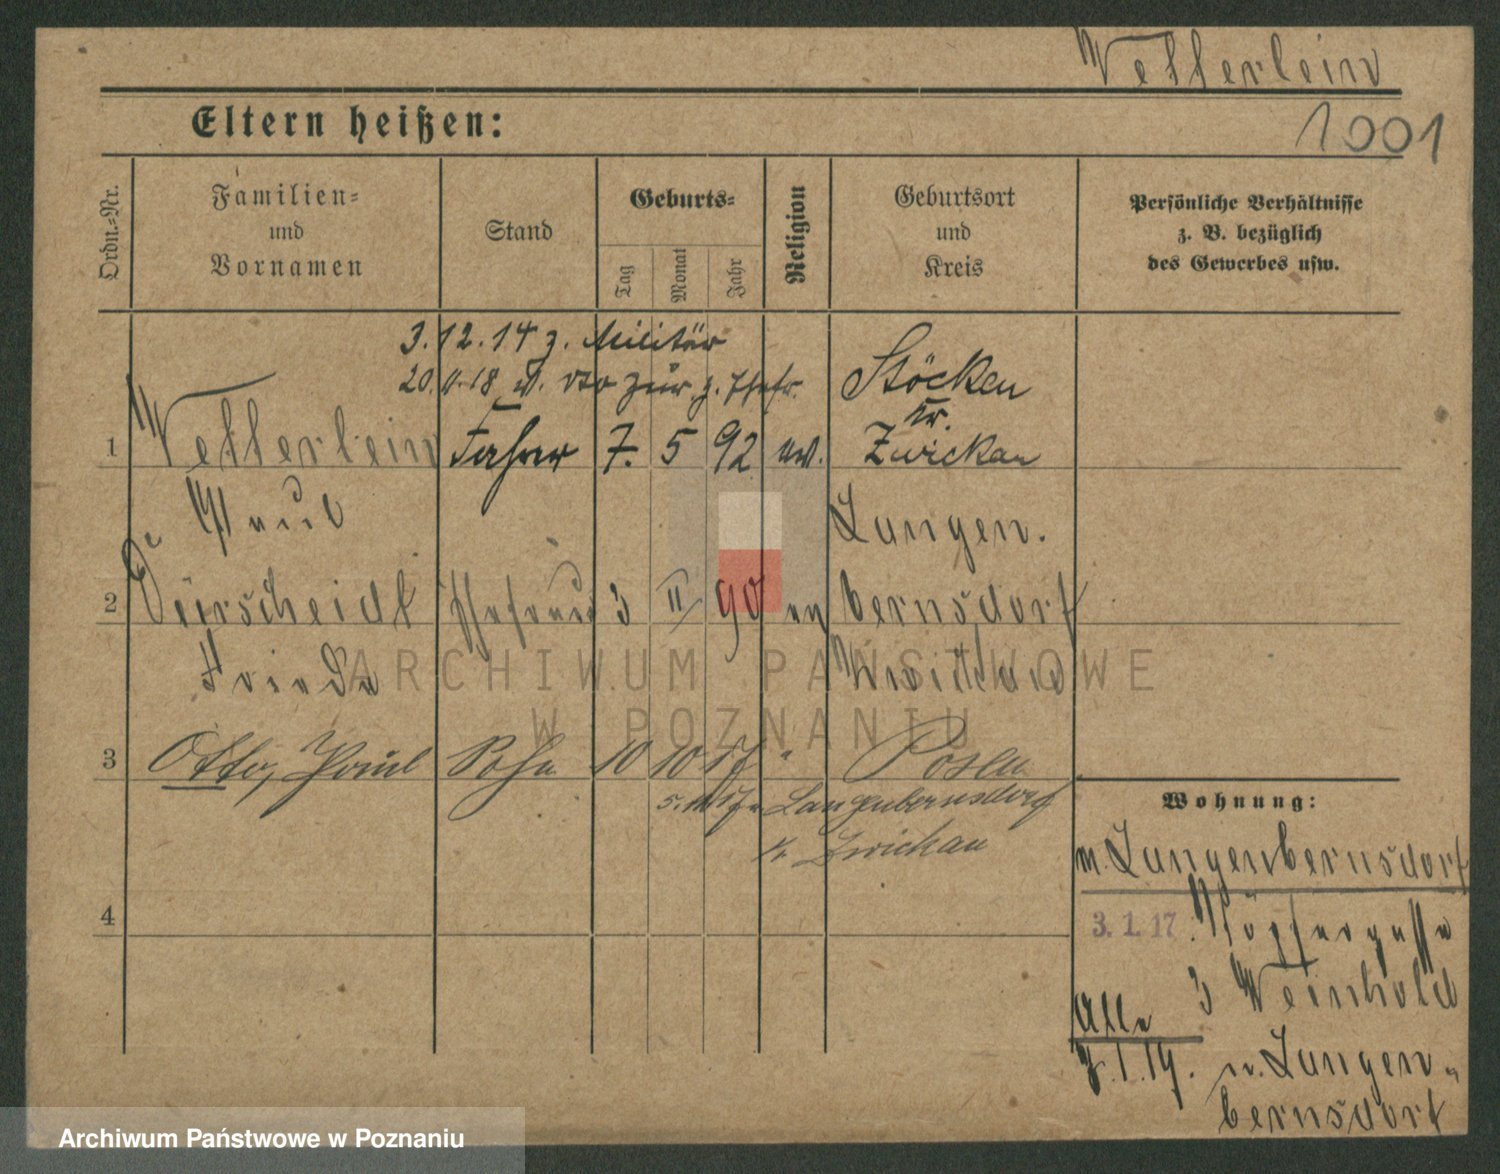 Vetterlein
1001
Eltern heißen:
Ordn.=Nr.
Familien=
und
Vornamen
Stand
Geburts=
Tag
Monat
Jahr
Religion
Geburtsort
und
Kreis
Persönliche Verhältnisse
z. B. bezüglich
des Gewerbes usw.
3.12.14 z. Militär
20. 11.18 v. zur z. Ehefr.
1 Vetterlein Fahrer 7. 5 92 ev. Stöcken Kr. Zwickau
Paul
2 Dürscheidt Ehefrau 3 II 90 ev Langen. bernsdorf
Frieda Zwickau
3 Otto, Paul Sohn 10 10 17 " Posen
5. 17 n Langenbernsdorf
Kr Zwickau
4
Wohnung:
n. Langenbernsdorf
3. 1. 17 Töpfergasse
3 Weinhold
Alle
7.1.19. n. Langen-
bernsdorf
ARCHIWUM PAŃSTWOWE
W POZNANIU
Archiwum Państwowe w Poznaniu